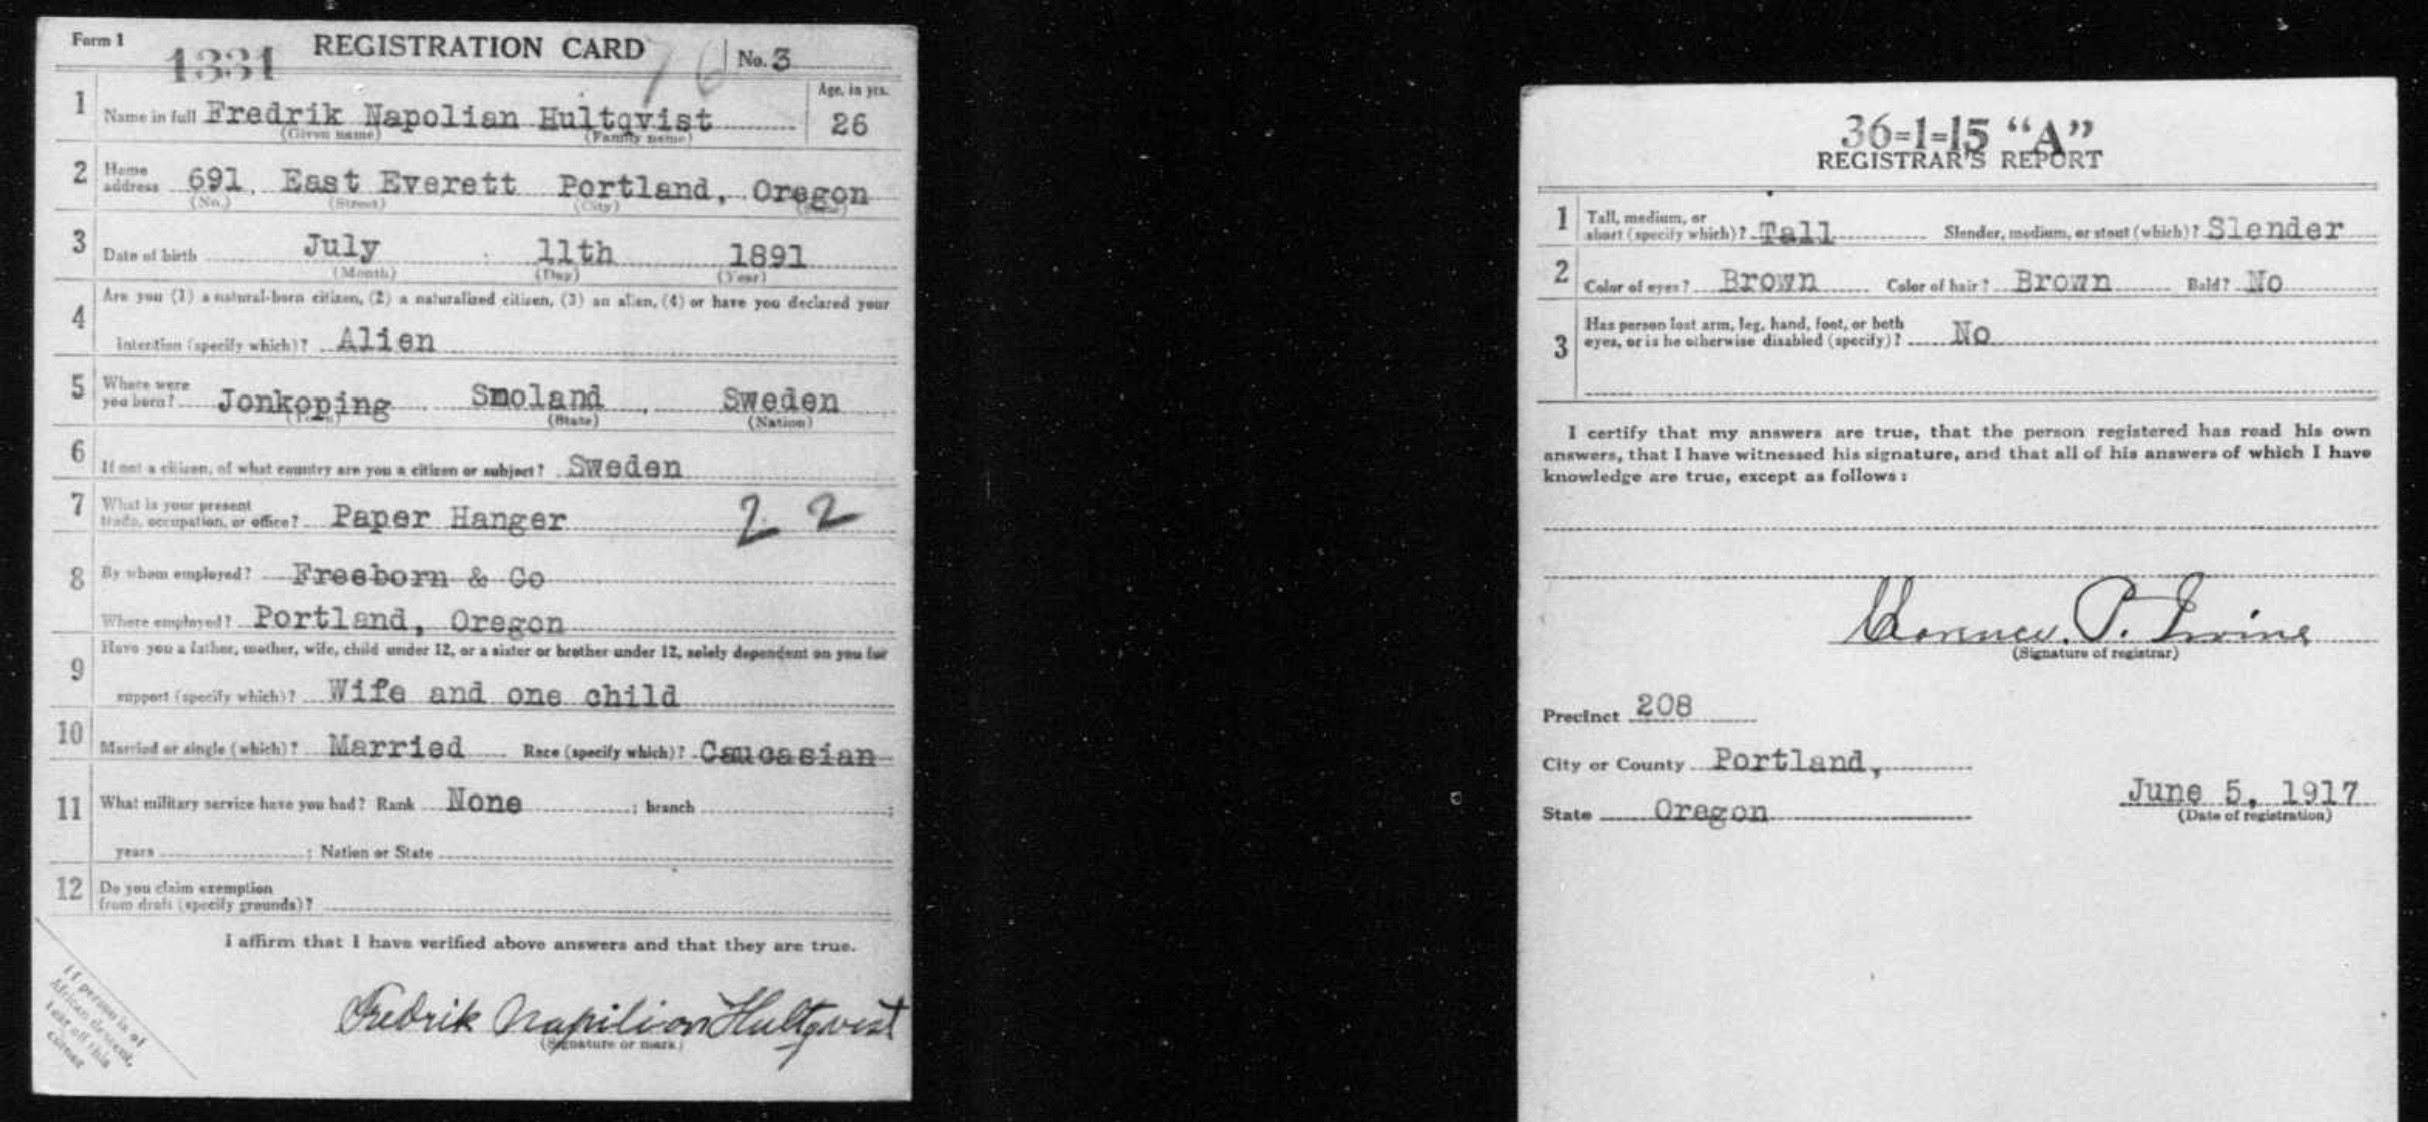 Form 1
1331 REGISTRATION CARD 76 No. 3
1 Name in full Fredrik Napolian Hultqvist Age, in yrs. 26
(Given name) (Family name)
2 Home address 691. East Everett Portland, Oregon
(No.) (Street) (City) (State)
3 Date of birth July 11th 1891
(Month) (Day) (Year)
4 Are you (1) a natural-born citizen, (2) a naturalized citizen, (3) an alien, (4) or have you declared your
intention (specify which)? Alien
5 Where were you born? Jonkoping Smoland, Sweden
(Town) (State) (Nation)
6 If not a citizen, of what country are you a citizen or subject? Sweden
7 What is your present trade, occupation, or office? Paper Hanger 22
8 By whom employed? Freeborn & Co
Where employed? Portland, Oregon
9 Have you a father, mother, wife, child under 12, or a sister or brother under 12, solely dependent on you for
support (specify which)? Wife and one child
10 Married or single (which)? Married Race (specify which)? Caucasian
11 What military service have you had? Rank None ; branch ;
years ; Nation or State
12 Do you claim exemption
from draft (specify grounds)?
I affirm that I have verified above answers and that they are true.
Fredrik Napilion Hultqvist
(Signature or mark)
If person is of
African descent,
tear off this
corner
36-1-15 “A”
REGISTRAR'S REPORT
1 Tall, medium, or
short (specify which)? Tall Slender, medium, or stout (which)? Slender
2 Color of eyes? Brown Color of hair? Brown Bald? No
3 Has person lost arm, leg, hand, foot, or both
eyes, or is he otherwise disabled (specify)? No
I certify that my answers are true, that the person registered has read his own
answers, that I have witnessed his signature, and that all of his answers of which I have
knowledge are true, except as follows:
Clarence P. Irvine
(Signature of registrar)
Precinct 208
City or County Portland,
State Oregon
June 5, 1917
(Date of registration)